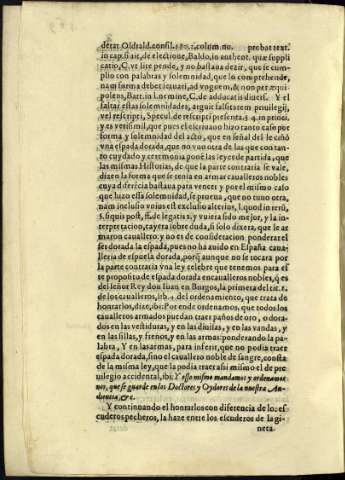 derat Oldrald. consil. 180. 2. colum. nu. probat text.
in cap. si aie, de electione, Baldo, in authent. quæ suppli
catio, C. ve lite pende, y no bastaua dezir, que se cum-
plio con palabras y solemnidad, que lo comprehende,
nam forma debet seruari, ad vnguem, & non per æqui
polens, Bart. in l. C. de adducatis diuers. Y el
faltar estas solemnidades, arguit falsitatem priuilegij,
vel rescripti, Specul. de rescript præsenta. §. 4. in princi.
y es verisimil, que pues el escriuano hizo tanto caso por
forma y solemnidad del acto, que en señal del le ciñó
vna espada dorada, que no vuo otra de las que con tan-
to cuydado y ceremonia pone las leyes de partida, que
las mismas Historias, de que la parte contraria se vale,
dizen la forma que se tenia en armar caualleros nobles
cuya diferēcia bastaua para vencer y por el mismo caso
que hizo essa solemnidad, se prueua, que no vuo otra,
nam inclusio vnius est exclusio alterius, l. quod in rerū,
§. si quis post, ff. de legatis 1. y vuiera sido mejor, y la in-
terpretacion, cayera sobre duda, si solo dixera, que le ar
maron cauallero, y no es de consideracion ponderar el
ser dorada la espada, pues no ha auido en España caua-
lleria de espuela dorada, porq̃ aunque no se tocara por
la parte contraria vna ley celebre que tenemos para es
te proposito de espada dorada en caualleros nobles, q̃ es
del señor Rey don Iuan en Burgos, la primera del tit. 1.
de los caualleros, lib. 4. del ordenamiento, que trata de
honrarlos, dize, ibi: Por ende ordenamos, que todos los
caualleros armados puedan traer paños de oro, o dora-
dos en las vestiduras, y en las diuisas, y en las vandas, y
en las sillas, y frenos, y en las armas: ponderando la pa-
labra, Y en las armas, para inferir, que no podia traer
espada dorada, sino el cauallero noble de sangre, consta
de la misma ley, que la podia traer assi mismo el de pre
uilegio accidental, ibi: Y esso mismo mandamos y ordenamos
nos, que se guarde en los Doctores y Oydores de la nuestra Au-
diencia, &c.
Y continuando el honrarlos con diferencia de los es
cuderos pecheros, la haze entre los escuderos de la gi
neta.